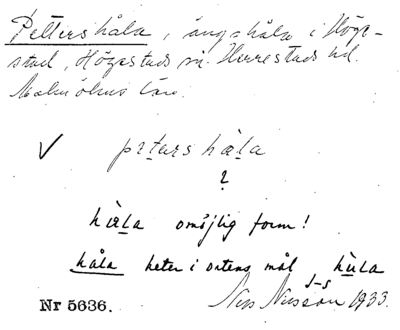 Pettershåla, ängshåla i Höge-
stad, Högestads sn. Herrestads hd.
Malmöhus län.
✓ petarshåla
?
håla omöjlig form!
håla heter i ortens mål hùla
J-s
Nils Nilsson 1933.
Nr 5636.